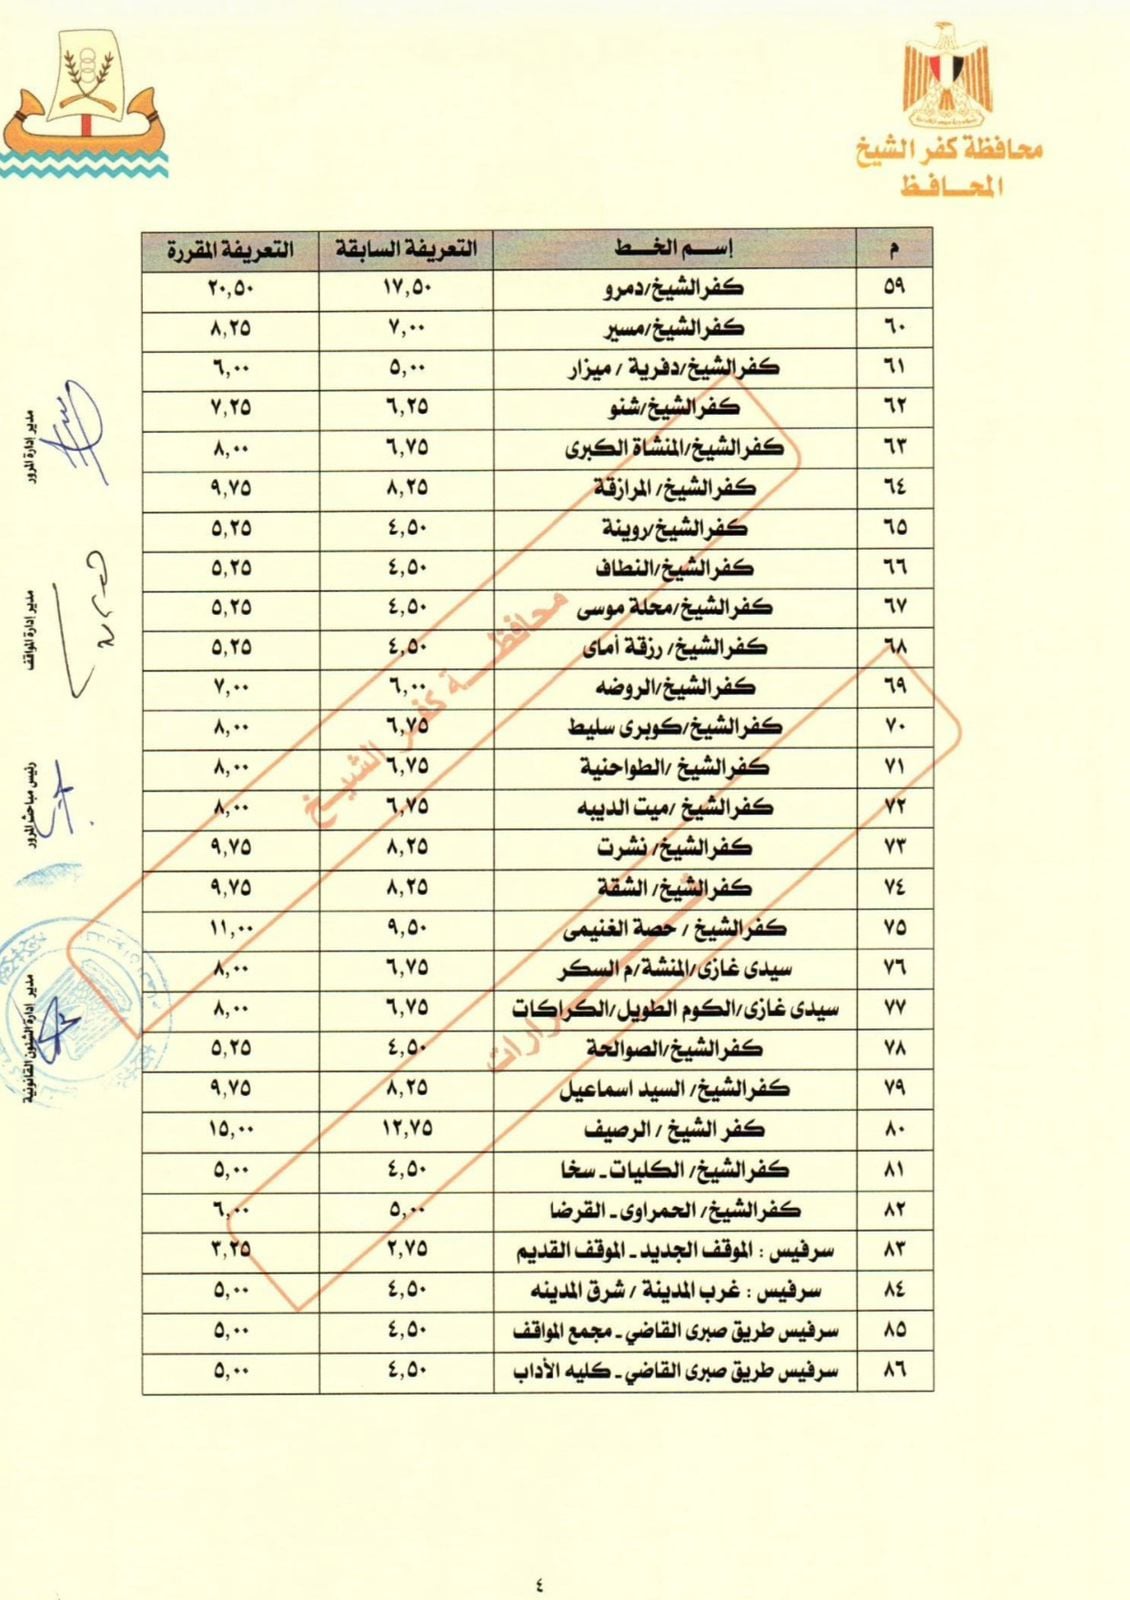 محافظة كفر الشيخ
المحافظ
م إسم الخط التعريفة السابقة التعريفة المقررة
٥٩ كفرالشيخ/دمرو ١٧,٥٠ ٢٠,٥٠
٦٠ كفرالشيخ/مسير ٧,٠٠ ٨,٢٥
٦١ كفرالشيخ/دفرية / ميزار ٥,٠٠ ٦,٠٠
٦٢ كفرالشيخ/شنو ٦,٢٥ ٧,٢٥
٦٣ كفرالشيخ/المنشاة الكبرى ٦,٧٥ ٨,٠٠
٦٤ كفرالشيخ/ المرازقة ٨,٢٥ ٩,٧٥
٦٥ كفرالشيخ/روينة ٤,٥٠ ٥,٢٥
٦٦ كفرالشيخ/النطاف ٤,٥٠ ٥,٢٥
٦٧ كفرالشيخ/محلة موسى ٤,٥٠ ٥,٢٥
٦٨ كفرالشيخ/ رزقة أماى ٤,٥٠ ٥,٢٥
٦٩ كفرالشيخ/الروضه ٦,٠٠ ٧,٠٠
٧٠ كفرالشيخ/كوبرى سليط ٦,٧٥ ٨,٠٠
٧١ كفرالشيخ /الطواحنية ٦,٧٥ ٨,٠٠
٧٢ كفرالشيخ /ميت الديبه ٦,٧٥ ٨,٠٠
٧٣ كفرالشيخ/ نشرت ٨,٢٥ ٩,٧٥
٧٤ كفرالشيخ/ الشقة ٨,٢٥ ٩,٧٥
٧٥ كفرالشيخ / حصة الغنيمى ٩,٥٠ ١١,٠٠
٧٦ سيدى غازى/المنشة/م السكر ٦,٧٥ ٨,٠٠
٧٧ سيدى غازى/الكوم الطويل/الكراكات ٦,٧٥ ٨,٠٠
٧٨ كفرالشيخ/الصوالحة ٤,٥٠ ٥,٢٥
٧٩ كفرالشيخ/ السيد اسماعيل ٨,٢٥ ٩,٧٥
٨٠ كفر الشيخ / الرصيف ١٢,٧٥ ١٥,٠٠
٨١ كفرالشيخ/ الكليات ـ سخا ٤,٥٠ ٥,٠٠
٨٢ كفرالشيخ/ الحمراوى ـ القرضا ٥,٠٠ ٦,٠٠
٨٣ سرفيس : الموقف الجديد ـ الموقف القديم ٢,٧٥ ٣,٢٥
٨٤ سرفيس : غرب المدينة / شرق المدينه ٤,٥٠ ٥,٠٠
٨٥ سرفيس طريق صبرى القاضي ـ مجمع المواقف ٤,٥٠ ٥,٠٠
٨٦ سرفيس طريق صبرى القاضي ـ كليه الأداب ٤,٥٠ ٥,٠٠
مدير إدارة المرور
مدير إدارة المواقف
رئيس مباحث المرور
مدير إدارة الشئون القانونية
محافظة كفر الشيخ
٤